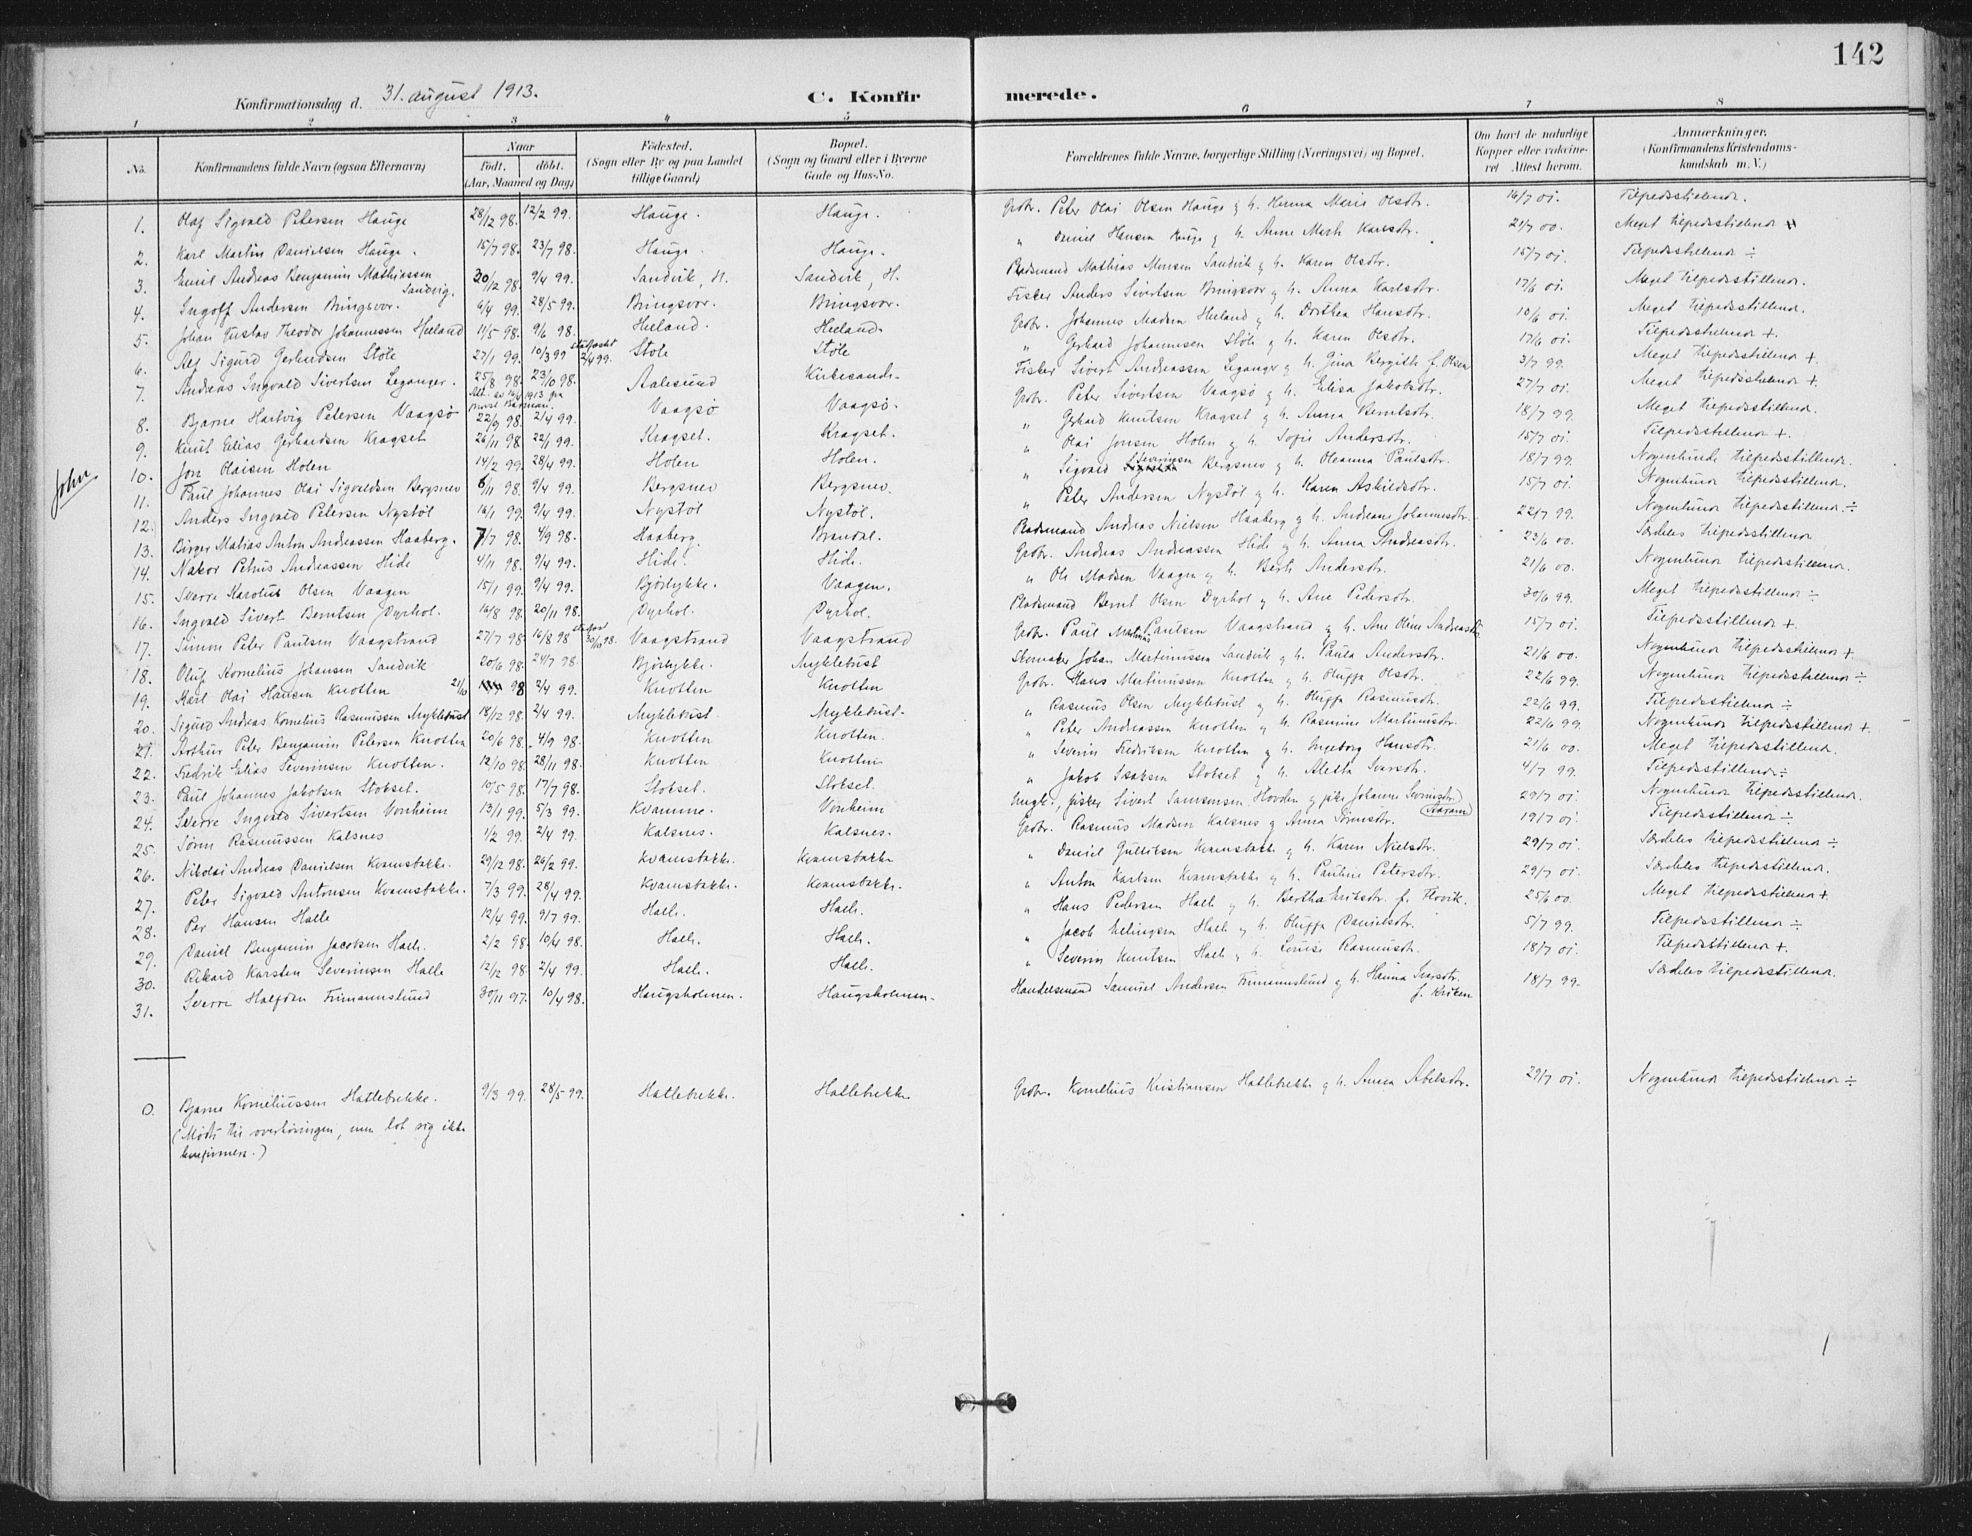 142
Konfirmationsdag d. 31. august 1913. C. Konfirmerede.
1 2 3 4 5 6 7 8
No. Konfirmandens fulde Navn (ogsaa Efternavn) Naar født. døbt. (Aar, Maaned og Dag) Födested. (Sogn eller By og paa Landet tillige Gaard) Bopæl. (Sogn og Gaard eller i Byerne Gade og Hus-No. Forældrenes fulde Navne, borgerlige Stilling (Næringsvei) og Bopæl. Om havt de naturlige Kopper eller vakcineret Attest herom. Anmærkninger. (Konfirmandens Kristendomskundskab m. V.)
1. Olaf Sigvald Petersen Hauge 28/12 98. 12/2 99. Hauge. Hauge. Grdbr. Peter Olai Olsen Hauge g h. Hanna Marie Olsdtr. 16/7 01. Tilfredsstillende.
2. Karl Martin Danielsen Hauge. 15/7 98. 23/7 98. Hauge. Hauge. " Daniel Hansen Hauge g h. Anne Marte Karlsdtr. 21/7 00. Meget tilfredsstillende
3. Emil Andreas Benjamin Mathiassen Sandvig. 30/12 98. 9/4 99. Sandvik, H. Sandvik, H. Pladsmand Mathias Monsen Sandvik g h. Karen Olsdtr. 15/7 01. Tilfredsstillende ÷
4. Ingolf Andersen Bringsvor. 6/4 99. 28/5 99. Bringsvor. Bringsvor. Fisker Anders Sivertsen Bringsvor g h. Anna Karlsdtr. 17/6 01. Meget tilfredsstillende.
5. Johan Gustav Theodor Johannessen Heeland 11/5 98. 9/6 98. Heeland. Heeland. Grdbr. Johannes Madsen Heeland g h. Dorthea Hansdtr. 10/6 01. Meget tilfredsstillende.
6. Alf Sigurd Gerhardsen Støle 27/1 99. 10/3 99 stadfæstet 2/4 99. Støle Støle " Gerhard Johannesen Støle g h. Karen Olsdtr. 17/6 01. Tilfredsstillende +.
7. Andreas Ingvald Sivertsen Leganger. 25/8 98. 23/10 98. Aalesund Kirkesande. Fisker Sivert Andreassen Leganger g h. Gina Bergitte f. Olsen 3/7 99. Meget tilfredsstillende +.
8. Bjarne Hartvig Petersen Vaagsø 22/9 98. 2/4 99. Vaagsø Vaagsø. Grdbr. Peter Sivertsen Vaagsø g h. Elisa Jakobsdtr. 27/7 01. Meget tilfredsstillende +.
9. Knut Elias Gerhardsen Kragset 26/11 98. 22/1 99. Kragset. Kragset. " Gerhard Knutsen Kragset g h. Anna Berntsdtr. 18/7 99. Meget tilfredsstillende.
John
10. Jon Olaisen Holen 14/2 99. 28/4 99. Holen Holen. " Olai Jonsen Holen g h. Sofie Andersdtr. 15/7 01. Tilfredsstillende +.
11. Paul Johannes Olai Sigvaldsen Bergsnev 6/11 98. 9/4 99. Bergsnev Bergsnev. " Sigvald Severinsen Bergsnev g h. Oleanna Paulsdtr. 18/7 99. Nogenlunde tilfredsstillende.
12. Anders Ingvald Petersen Nystøl 16/1 99. 9/4 99. Nystøl Nystøl. " Peter Andersen Nystøl g h. Karen Askildsdtr. 15/7 01. Nogenlunde tilfredsstillende.
13. Birger Matias Anton Andreassen Haaberg. 7/7 98. 4/9 98. Haaberg. Brandal. Pladsmand Andreas Nielsen Haaberg g h. Andreane Johannesdtr. 22/7 99. Nogenlunde tilfredsstillende. ÷
14. Nakor Petrus Andreassen Hide 4/11 98. 9/4 99. Hide. Hide. Grdbr. Andreas Andreassen Hide g h. Anna Andreasdtr. 23/6 00. Særdeles tilfredsstillende
15. Sverre Karolus Olsen Vaagen 15/1 99. 9/4 99. Bjørlykke. Vaagen. " Ole Madsen Vaagen g h. Berte Andersdtr. 21/6 00. Nogenlunde tilfredsstillende.
16. Ingvald Sivert Berntsen Dyrhol. 16/8 98. 20/11 98. Dyrhol. Dyrhol. Pladsmand Bernt Olsen Dyrhol g h. Ane Pedersdtr. 30/6 99. Meget tilfredsstillende ÷
17. Simon Peter Paulsen Vaagstrand 27/7 98. 16/8 98 30/10 98. Vaagstrand Vaagstrand Grdbr. Paul Martinus Paulsen Vaagstrand g h. Ane Oline Andreasdtr. 15/7 01. Tilfredsstillende +.
18. Oluf Kornelius Johansen Sandvik 20/6 98. 24/7 98. Bjørlykke. Myklebust Skomaker Johan Martinussen Sandvik g h. Paula Andersdtr. 21/6 00. Nogenlunde tilfredsstillende +.
19. Karl Olai Hansen Knotten 21/10 98 2/4 99. Knotten Knotten Grdbr. Hans Martinussen Knotten g h. Oluffa Olsdtr. 22/6 99. Nogenlunde tilfredsstillende ÷
20. Sigurd Andreas Kornelius Rasmussen Myklebust 18/12 98. 2/4 99. Myklebust. Myklebust. " Rasmus Olsen Myklebust g h. Oluffa Rasmusdtr. 22/6 99. Tilfredsstillende ÷
21. Arthur Peter Benjamin Petersen Knotten 20/6 98. 4/9 98. Knotten Knotten. " Peter Andreassen Knotten g h. Rasmine Martinusdtr. 22/6 99. Nogenlunde tilfredsstillende +
22. Fredrik Elias Severinsen Knotten. 12/10 98. 28/11 98. Knotten Knotten " Severin Fredriksen Knotten g h. Ingeborg Hansdtr. 21/6 00. Meget tilfredsstillende.
23. Paul Johannes Jakobsen Slotset. 10/5 98. 17/7 98. Slotset. Slotset. " Jakob Isaksen Slotset g h. Aletta Ivarsdtr. 4/7 99. Tilfredsstillende ÷
24. Sverre Ingvald Sivertsen Vonheim 13/1 99. 5/3 99. Kvamme. Vonheim Ungk., fisker Sivert Samsonsen Hovden g pike Johanne (Haram) 29/7 01. Nogenlunde tilfredsstillende.
25. Sørn Rasmussen Kalsnes 1/2 99. 2/4 99. Kalsnes. Kalsnes. Grdbr. Rasmus Madsen Kalsnes g Anna Sørnsdtr. 19/7 01. Tilfredsstillende ÷
26. Nikolai Andreas Danielsen Kvamsbakke. 29/12 98. 26/2 99. Kvamsbakke. Kvamsbakke " Daniel Gulliksen Kvamsbakke g h. Karen Nielsdtr. 29/7 01. Særdeles tilfredsstillende ÷
27. Peter Sigvald Antonsen Kvamsbakke. 7/3 99. 28/4 99. Kvamsbakke. Kvamsbakke. " Anton Karlsen Kvamsbakke g h. Pauline Petersdtr. 29/7 01. Særdeles tilfredsstillende.
28. Per Hansen Halle 12/4 99. 9/7 99. Halle. Halle. " Hans Pedersen Halle g h. Bertha Eriksdtr. f. Flovik. 25/6 00. Meget tilfredsstillende +
29. Daniel Benjamin Jacobsen Halle. 2/2 98. 10/4 98. Halle. Halle. " Jacob Elingsen Halle g h. Oluffa Danielsdtr. 5/7 99. Tilfredsstillende ÷
30. Rikard Karsten Severinsen Halle 12/12 98. 2/4 99. Halle. Halle. " Severin Knutsen Halle g h. Louise Rasmusdtr. 18/7 01. Tilfredsstillende +.
31. Sverre Halfdan Frimannslund 30/11 97. 10/4 98. Haugsholmen. Haugsholmen. Handelsmand Samuel Andersen Frimannslund g h. Hanna Ivarsdtr. 18/7 99. Særdeles tilfredsstillende.
0. Bjarne Korneliussen Hatlebrekke. 9/3 99. 28/5 99. Hatlebrekke. Hatlebrekke Grdbr. Kornelius Kristiansen Hatlebrekke g h. Anna Abelsdtr. 29/7 01. Nogenlunde tilfredsstillende ÷
(Mødte til overhøringen, men lot sig ikke
konfirmere.)